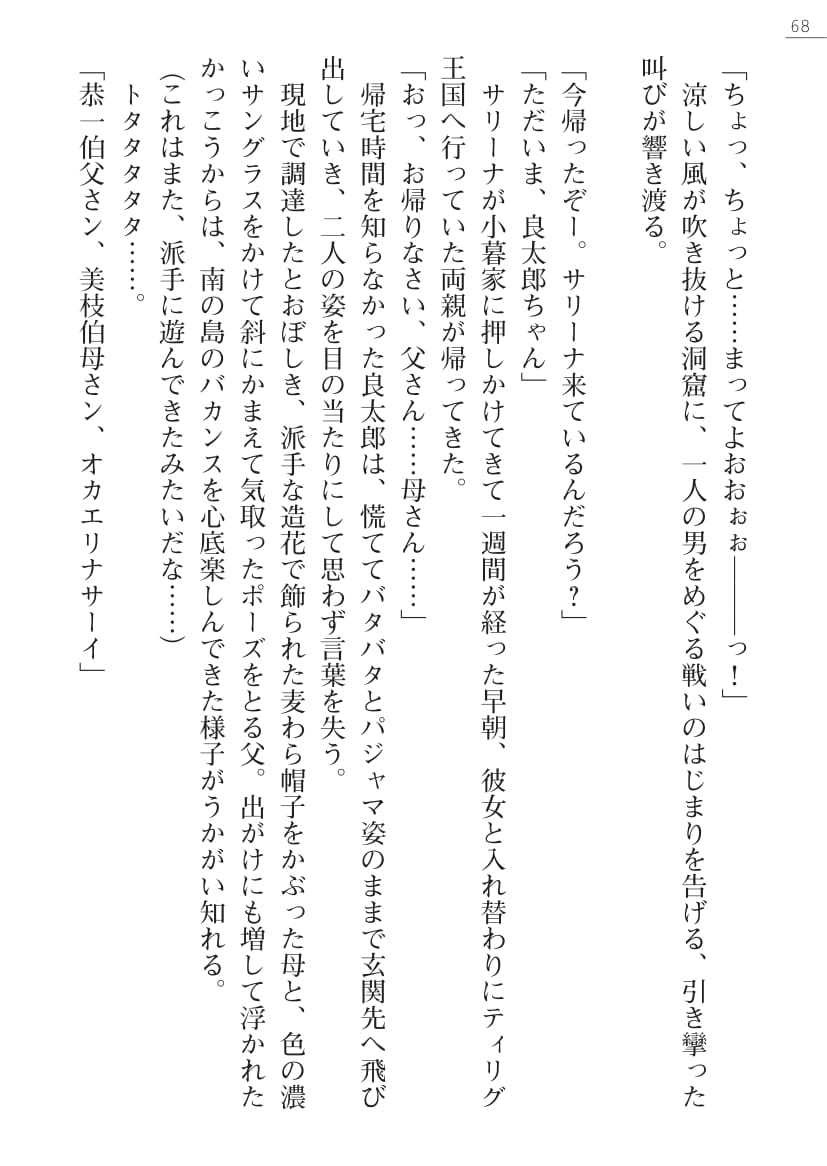 68
「ちょっ、ちょっと……まってよおおぉぉ―――っ！」
　涼しい風が吹き抜ける洞窟に、一人の男をめぐる戦いのはじまりを告げる、引き攣った
叫びが響き渡る。
「今帰ったぞー。サリーナ来ているんだろう？」
「ただいま、良太郎ちゃん」
　サリーナが小暮家に押しかけてきて一週間が経った早朝、彼女と入れ替わりにティリグ
王国へ行っていた両親が帰ってきた。
「おっ、お帰りなさい、父さん……母さん……」
　帰宅時間を知らなかった良太郎は、慌ててバタバタとパジャマ姿のままで玄関先へ飛び
出していき、二人の姿を目の当たりにして思わず言葉を失う。
　現地で調達したとおぼしき、派手な造花で飾られた麦わら帽子をかぶった母と、色の濃
いサングラスをかけて斜にかまえて気取ったポーズをとる父。出がけにも増して浮かれた
かっこうからは、南の島のバカンスを心底楽しんできた様子がうかがい知れる。
（これはまた、派手に遊んできたみたいだな……）
　トタタタタタ……。
「恭一伯父さン、美枝伯母さン、オカエリナサーイ」